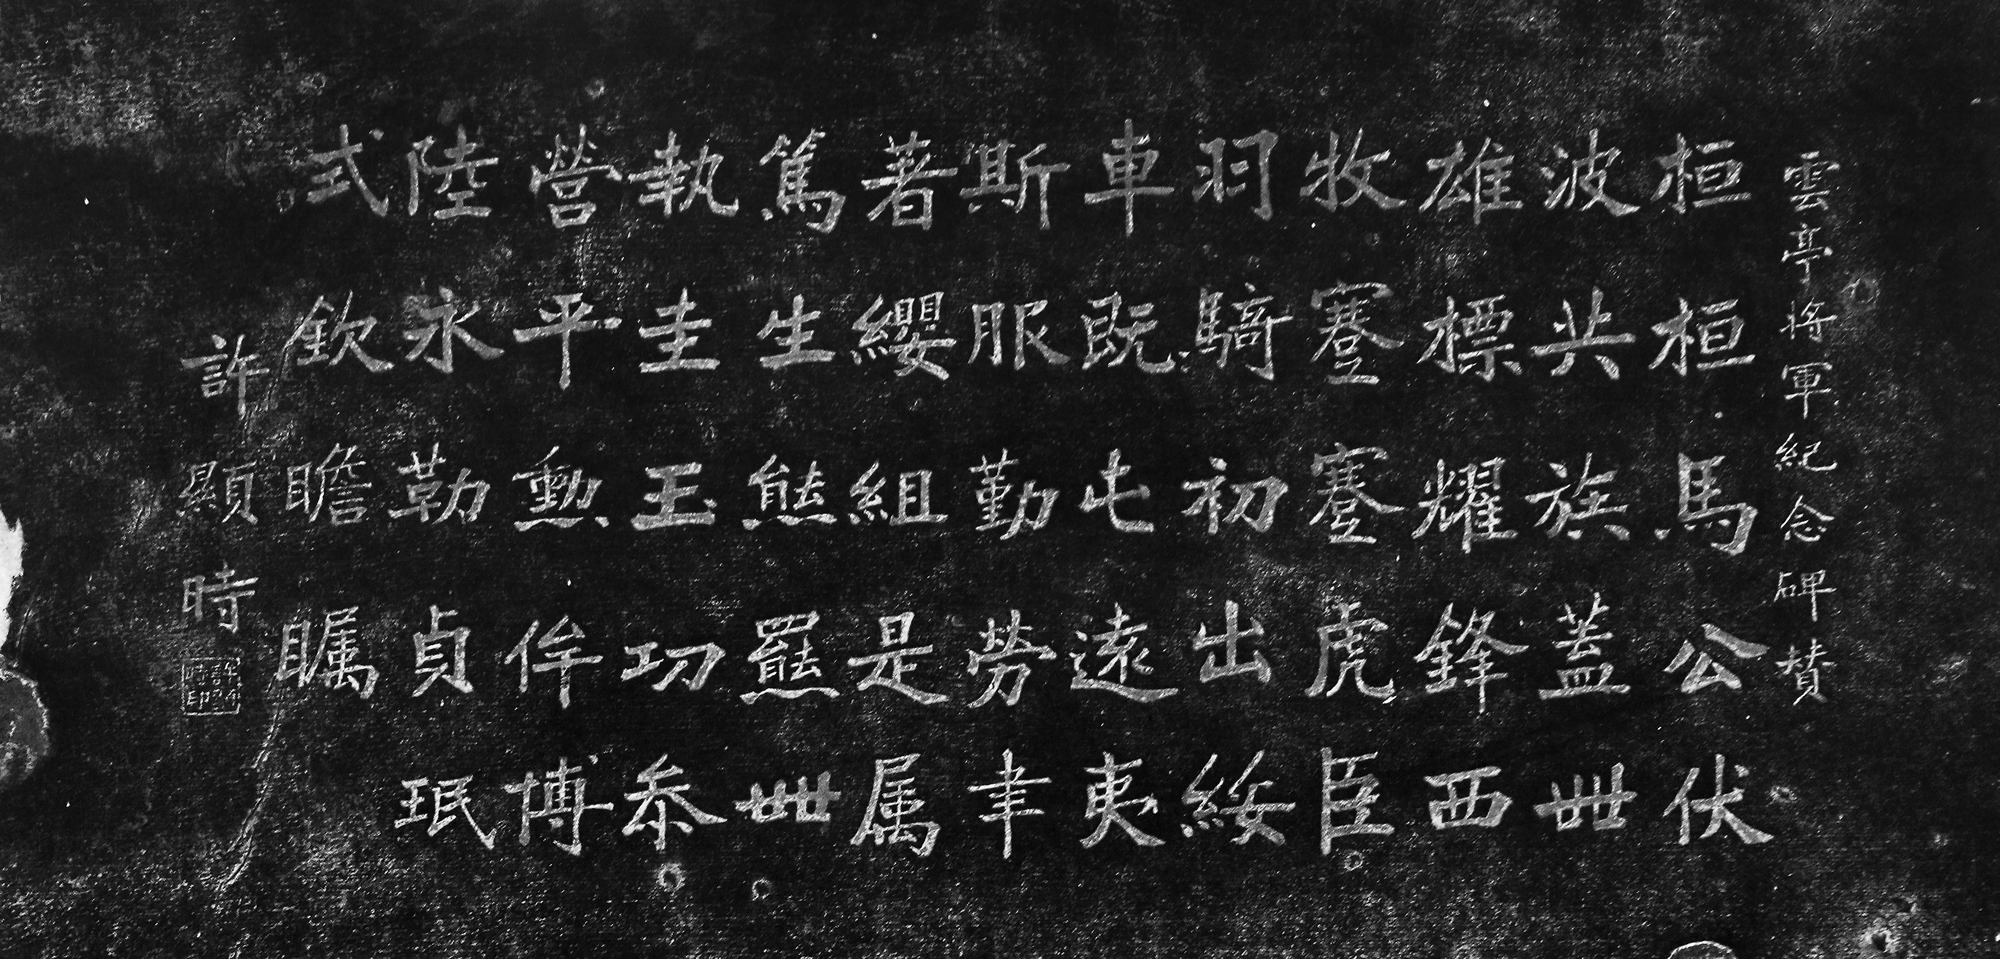 雲亭将軍紀念碑賛
桓桓馬公伏
波共族蓋世
雄標耀鋒西
牧蹇蹇虎臣
羽騎初出綏
車既屯遠夷
斯服勤勞聿
著纓組是属
篤生熊羆世
執圭玉功叅
營平勲侔博
陸永勒貞珉
式欽瞻瞩
許顯時